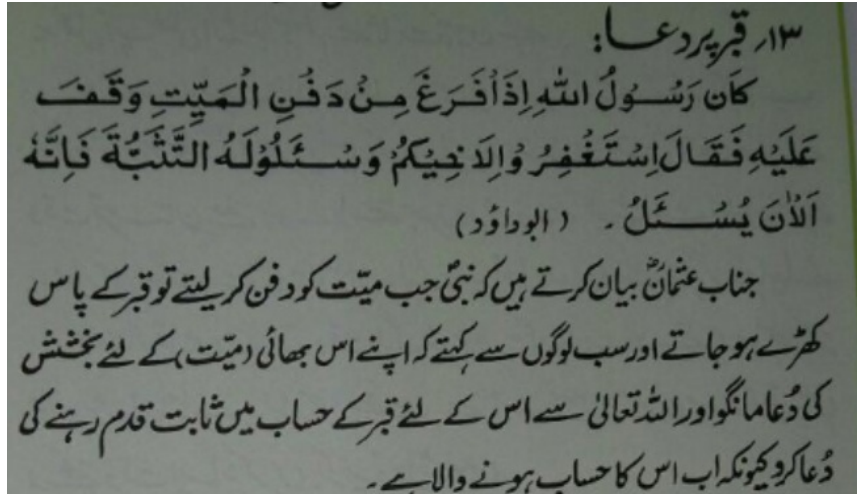 ۱۳؍ قبر پر دعا:
كَانَ رَسُوْلُ اللهِ اِذَا فَرَغَ مِنْ دَفْنِ الْمَيِّتِ وَقَفَ
عَلَيْهِ فَقَالَ اِسْتَغْفِرُوْا لِاَخِيْكُمْ وَسْئَلُوْ لَهُ التَّثَبُّةَ فَاِنَّهٗ
اَلْاٰنَ يُسْئَلُ ۔ (ابوداؤد)
جناب عثمانؓ بیان کرتے ہیں کہ نبیؐ جب میّت کو دفن کر لیتے تو قبر کے پاس
کھڑے ہو جاتے اور سب لوگوں سے کہتے کہ اپنے اس بھائی (میّت) کے لئے بخشش
کی دُعا مانگو اور اللہ تعالیٰ سے اس کے لئے قبر کے حساب میں ثابت قدم رہنے کی
دُعا کرو کیونکہ اب اس کا حساب ہونے والا ہے۔